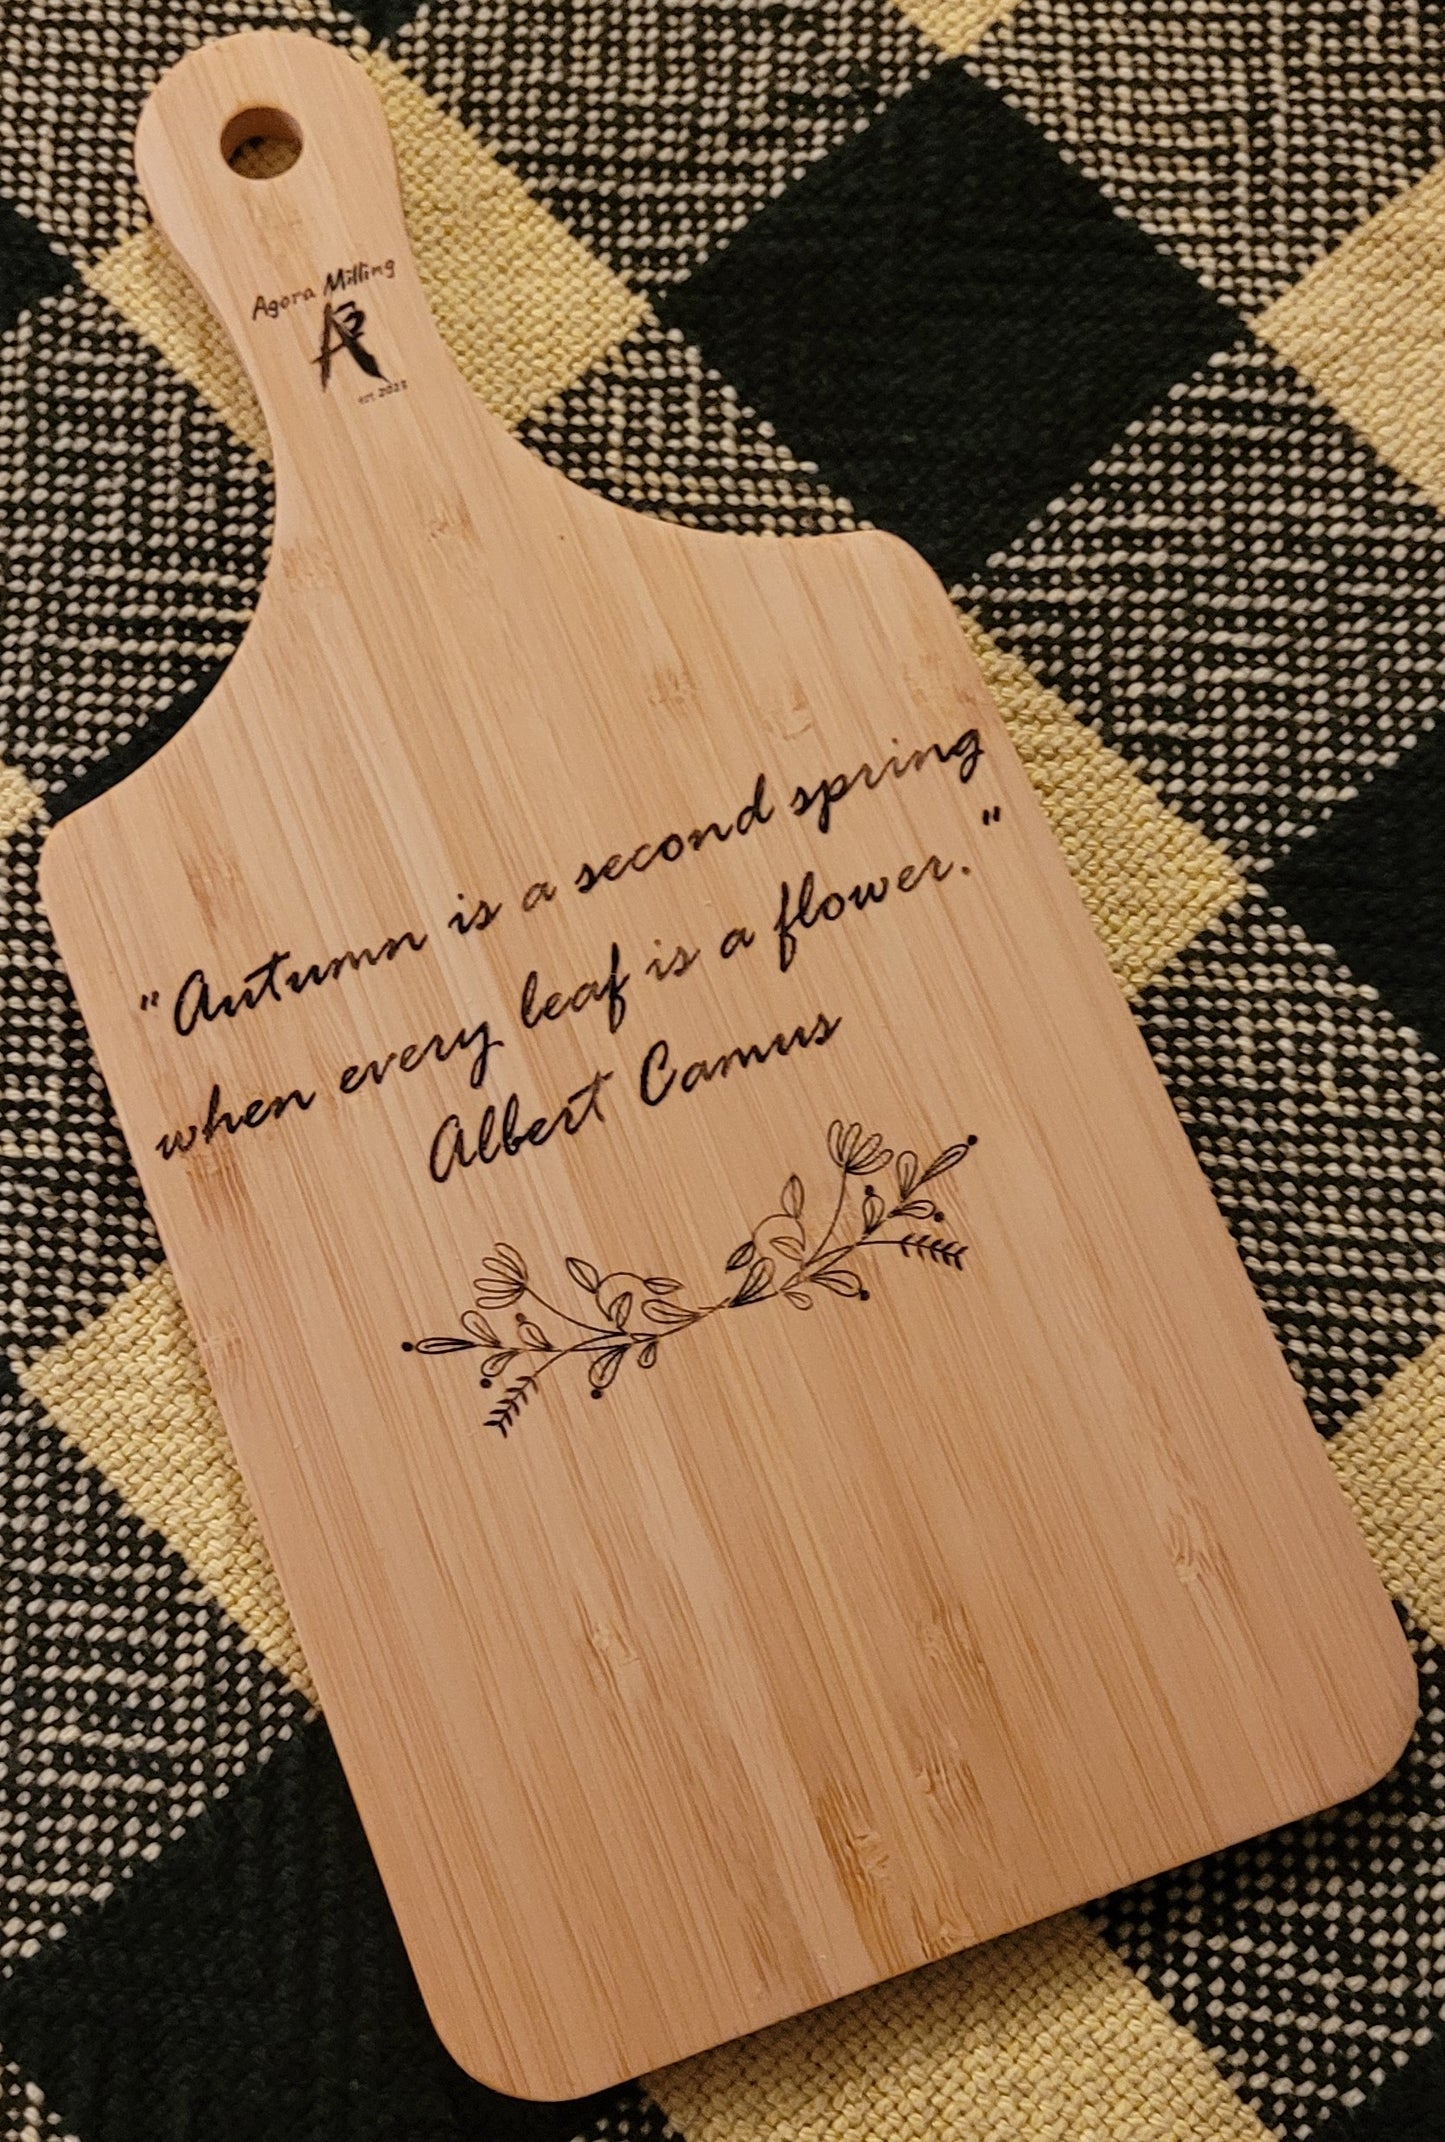 Agora Milling
AR
est. 2023
"Autumn is a second spring
when every leaf is a flower."
Albert Camus